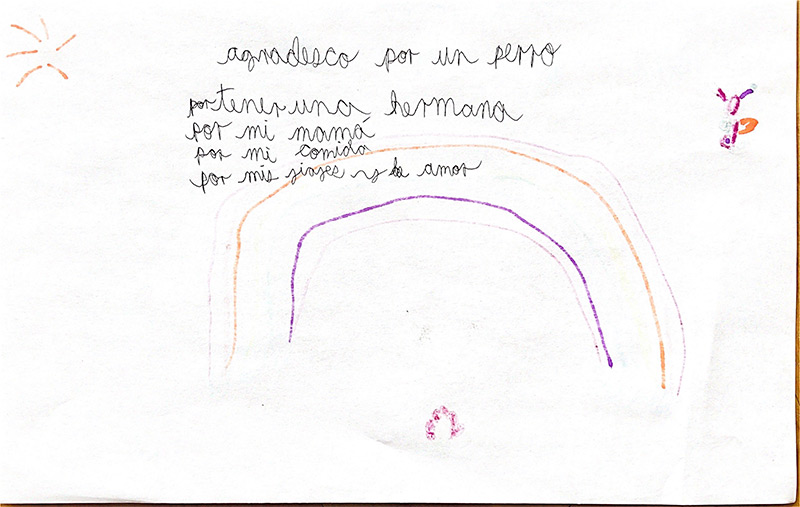 agradesco por un perro
por tener una hermana
por mi mamá
por mi comida
por mis viajes y amor